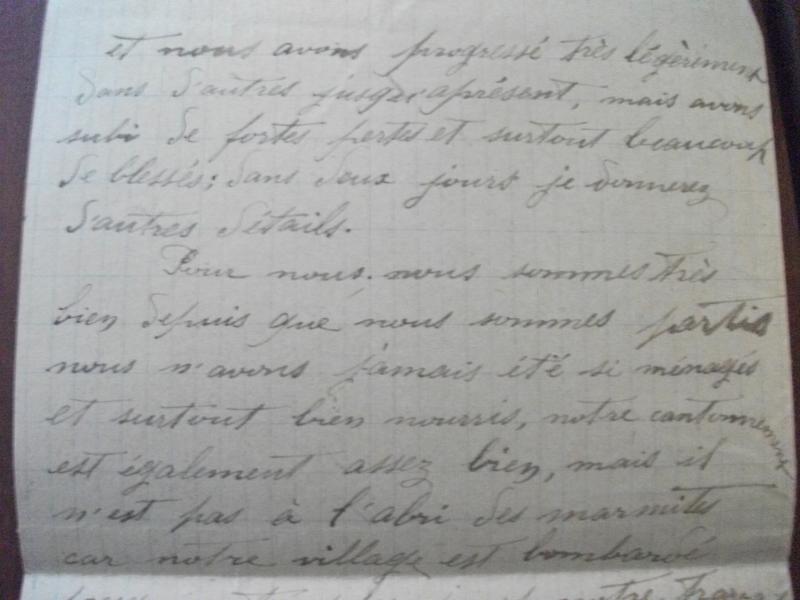 et nous avons progressé très légèrement
dans d'autres jusqu'aprésent, mais avons
subi de fortes pertes et surtout beaucoup
de blessés; dans deux jours je donnerez
d'autres détails.
Pour nous. nous sommes très
bien depuis que nous sommes partis
nous n'avons jamais été si ménagés
et surtout bien nourris, notre cantonnement
est également assez bien, mais il
n'est pas à l'abri des marmites
car notre village est bombardé
notre